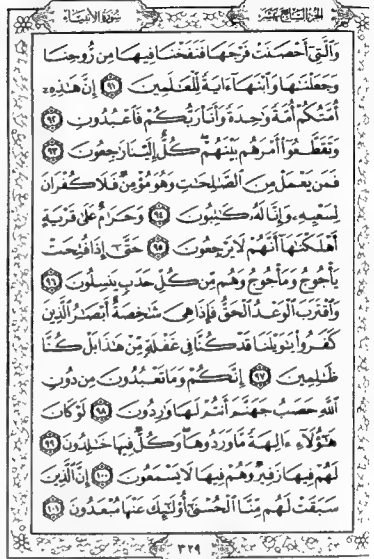 الجزء السابع عشر سورة الأنبياء
وَٱلَّتِىٓ أَحْصَنَتْ فَرْجَهَا فَنَفَخْنَا فِيهَا مِن رُّوحِنَا
وَجَعَلْنَٰهَا وَٱبْنَهَآ ءَايَةً لِّلْعَٰلَمِينَ ٩١ إِنَّ هَٰذِهِۦٓ
أُمَّتُكُمْ أُمَّةً وَٰحِدَةً وَأَنَا۠ رَبُّكُمْ فَٱعْبُدُونِ ٩٢
وَتَقَطَّعُوٓا۟ أَمْرَهُم بَيْنَهُمْ ۖ كُلٌّ إِلَيْنَا رَٰجِعُونَ ٩٣
فَمَن يَعْمَلْ مِنَ ٱلصَّٰلِحَٰتِ وَهُوَ مُؤْمِنٌ فَلَا كُفْرَانَ
لِسَعْيِهِۦ وَإِنَّا لَهُۥ كَٰتِبُونَ ٩٤ وَحَرَٰمٌ عَلَىٰ قَرْيَةٍ
أَهْلَكْنَٰهَآ أَنَّهُمْ لَا يَرْجِعُونَ ٩٥ حَتَّىٰٓ إِذَا فُتِحَتْ
يَأْجُوجُ وَمَأْجُوجُ وَهُم مِّن كُلِّ حَدَبٍ يَنسِلُونَ ٩٦
وَٱقْتَرَبَ ٱلْوَعْدُ ٱلْحَقُّ فَإِذَا هِىَ شَٰخِصَةٌ أَبْصَٰرُ ٱلَّذِينَ
كَفَرُوا۟ يَٰوَيْلَنَا قَدْ كُنَّا فِى غَفْلَةٍ مِّنْ هَٰذَا بَلْ كُنَّا
ظَٰلِمِينَ ٩٧ إِنَّكُمْ وَمَا تَعْبُدُونَ مِن دُونِ
ٱللَّهِ حَصَبُ جَهَنَّمَ أَنتُمْ لَهَا وَٰرِدُونَ ٩٨ لَوْ كَانَ
هَٰٓؤُلَآءِ ءَالِهَةً مَّا وَرَدُوهَا ۖ وَكُلٌّ فِيهَا خَٰلِدُونَ ٩٩
لَهُمْ فِيهَا زَفِيرٌ وَهُمْ فِيهَا لَا يَسْمَعُونَ ١٠٠ إِنَّ ٱلَّذِينَ
سَبَقَتْ لَهُم مِّنَّا ٱلْحُسْنَىٰٓ أُو۟لَٰٓئِكَ عَنْهَا مُبْعَدُونَ ١٠١
٣٢٩